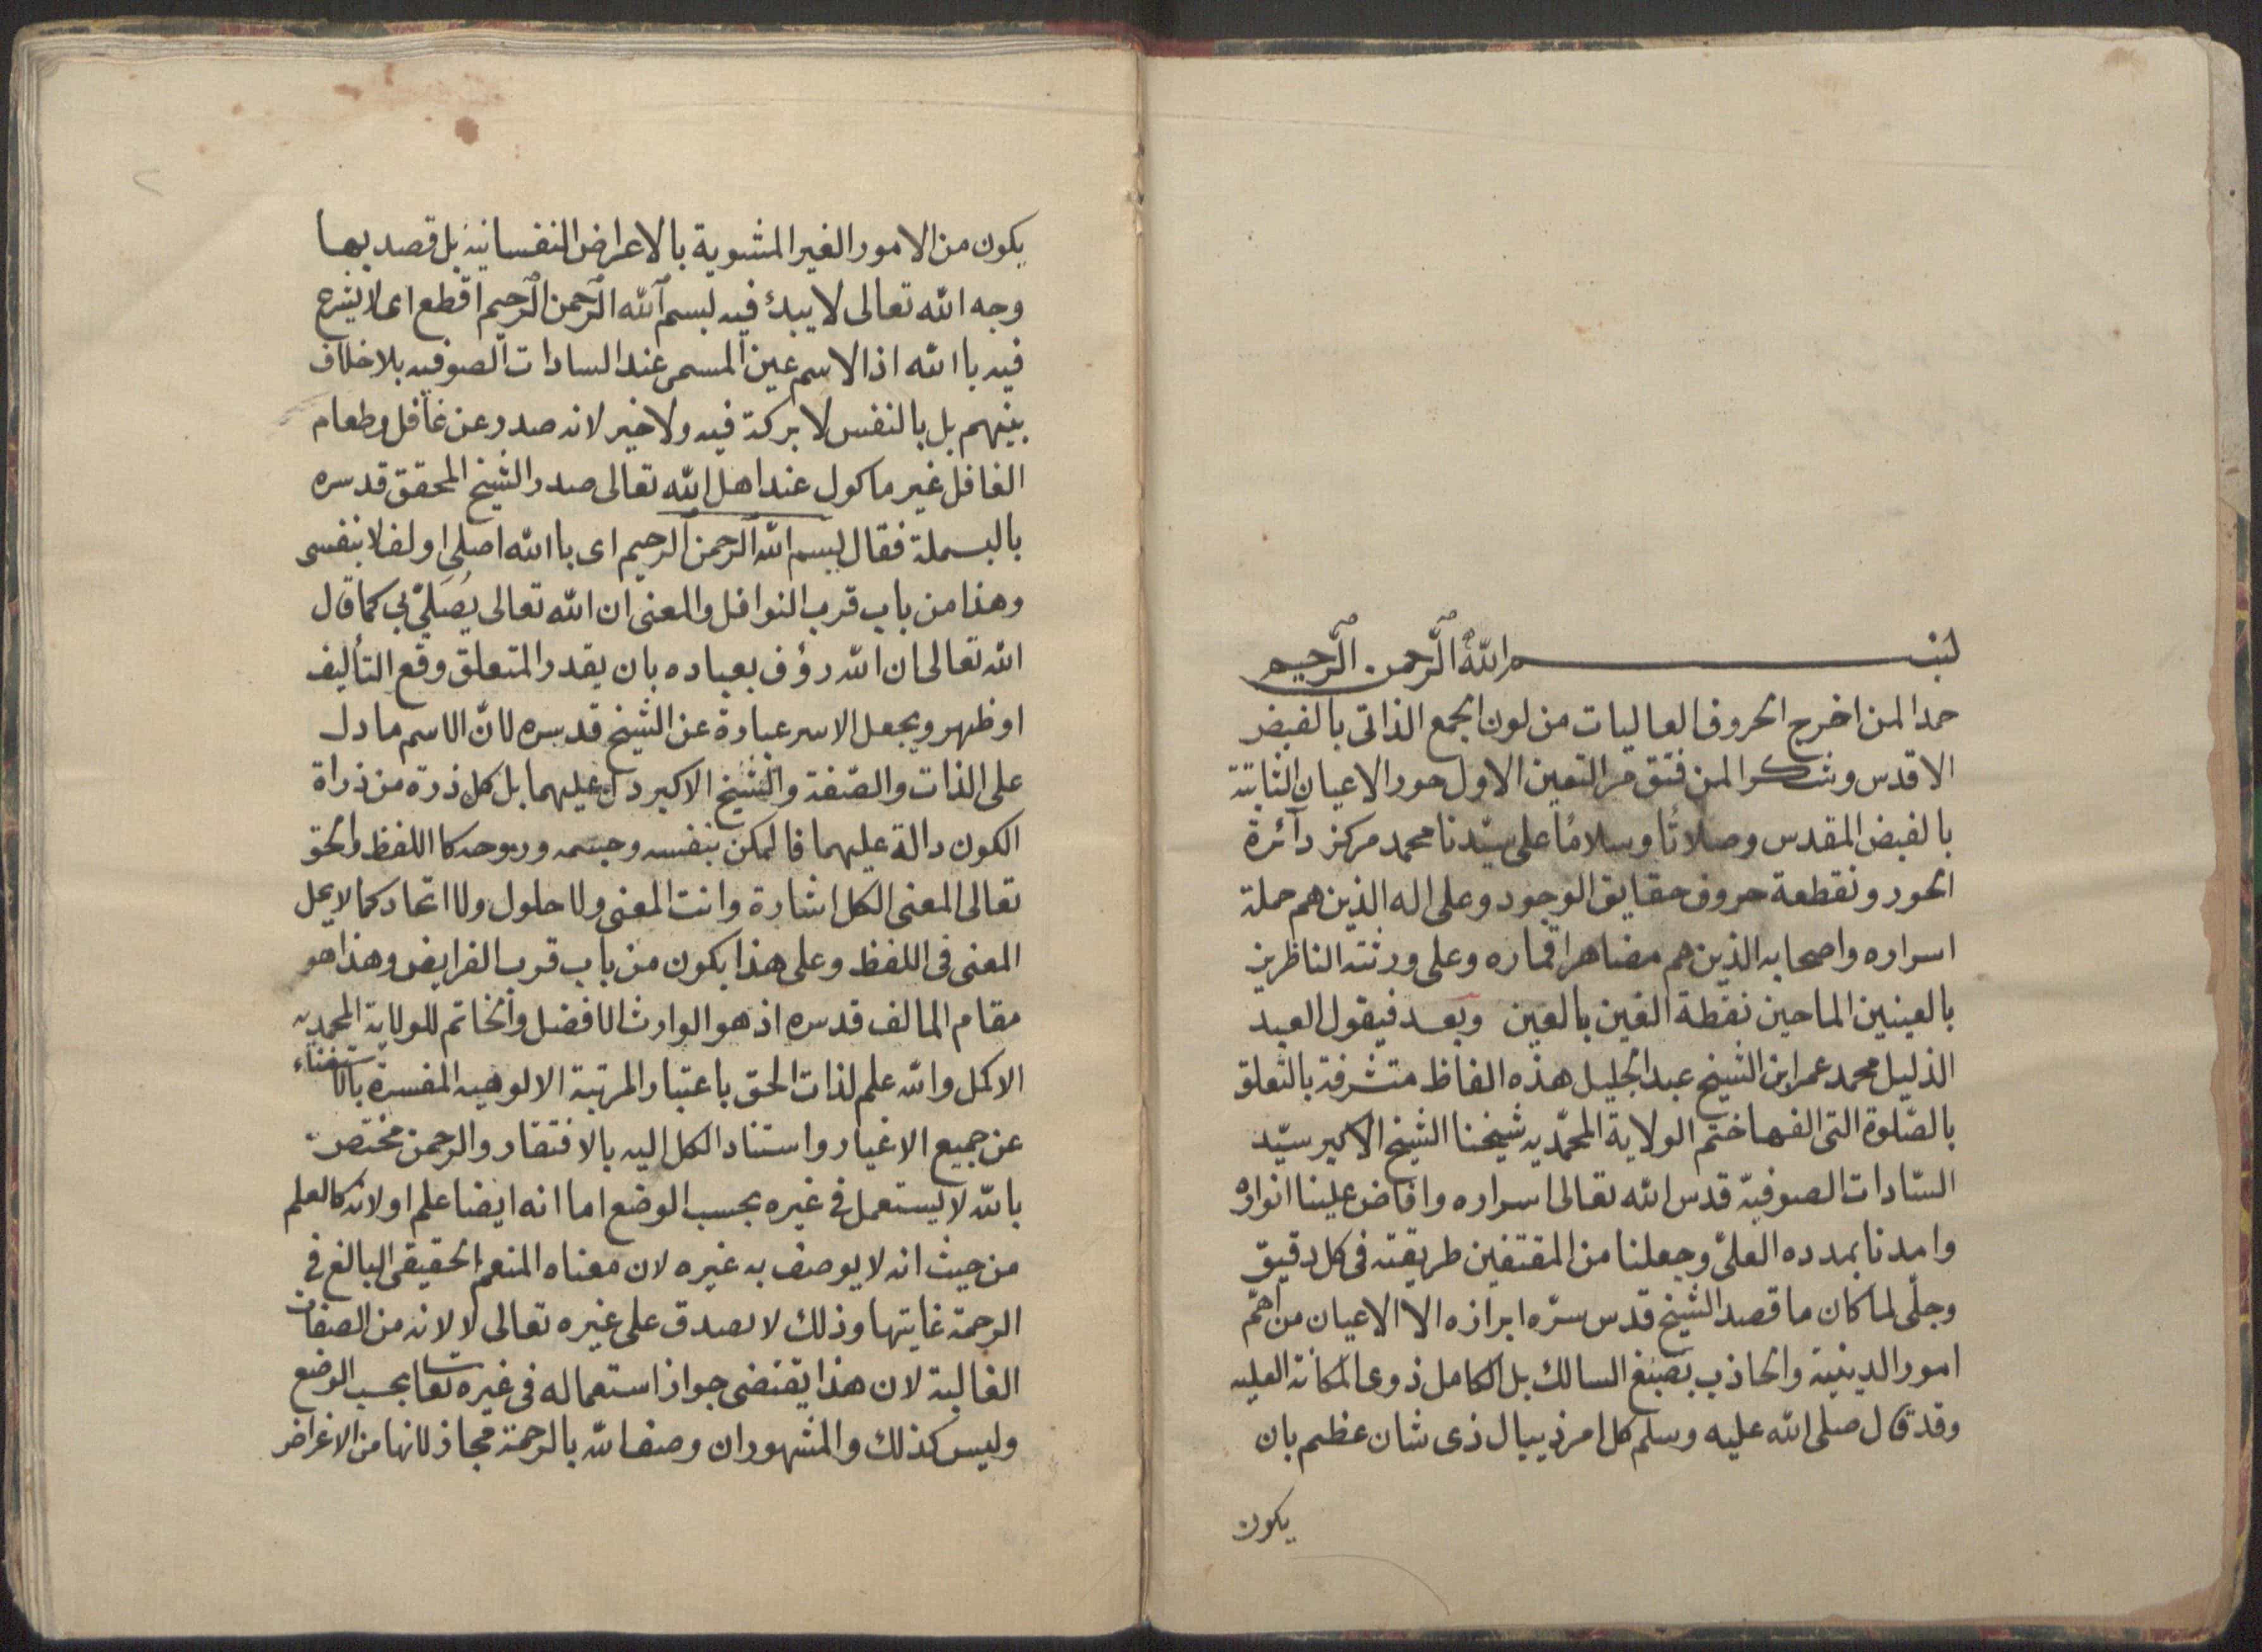 بسم الله الرحمن الرحيم
حمدا لمن اخرج الحروف العاليات من لون الجمع الذاتى بالفيض
الاقدس وشكرا لمن فتق من التعين الاول حور الاعيان الثابتة
بالفيض المقدس وصلاتًا وسلامًا على سيّدنا محمد مركز دآئرة
الحور ونقطعة حروف حقايق الوجود وعلى اله الذين هم حملة
اسراره واصحابه الذين هم مضاهر اقماره وعلى ورثته الناظرين
بالعينين الماحين نقطة الغين بالعين وبعد فيقول العبد
الذليل محمد عمر ابن الشيخ عبد الجليل هذه الفاظ متشرفة بالتعلق
بالصّلوة التى الفها ختم الولاية المحمّديه شيخنا الشيخ الاكبر سيّد
السّادات الصوفيّه قدس الله تعالى اسراره وافاض علينا انواره
وامدنا بمدده العلىّ وجعلنا من المقتفين طريقته فى كل دقيق
وجلّى لما كان ما قصد الشيخ قدس سرّه ابرازه الا الاعيان من اهمّ
امور الدينية والحاذب بصبغ السالك بل الكامل ذوى المكانة العليه
وقد قال صلى الله عليه وسلم كل امر ذيبال ذى شان عظيم بان
يكون
٢
يكون من الامور الغير المشوبة بالاعراض النفسانية بل قصد بها
وجه الله تعالى لا يبدئ فيه لبسم الله الرحمن الرحيم اقطع اى لا يشرع
فيه باالله اذ الاسم عين المسمى عند السادات الصوفيه بلا خلاف
بينهم بل بالنفس لا بركة فيه ولا خير لانه صدر عن غافل وطعام
الغافل غير ماكول عند اهل الله تعالى صدر الشيخ المحقق قدسره
بالبسملة فقال بسم الله الرحمن الرحيم اى باالله اصلى اولف لا بنفسى
وهذا من باب قرب النوافل والمعنى ان الله تعالى يُصَلّي بى كما قال
الله تعالى ان الله رؤف بعباده بان يقدر المتعلق وقع التأليف
او ظهر ويجعل الاسم عبارة عن الشيخ قدسره لانّ الاسم ما دل
على الذات والصّفة والشيخ الاكبر دل عليهما بل كل ذرة من ذراة
الكون دالة عليهما فالممكن بنفسه وجسمه وروحه كاللفظ والحق
تعالى المعنى الكل اشارة وانت المعنى ولا حلول ولا اتحاد كما لا يحل
المعنى فى اللفظ وعلى هذا يكون من باب قرب الفرايض وهذا هو
مقام المالف قدسره اذ هو الوارث الافضل والخاتم للولاية المحمديه
الاكمل والله علم لذات الحق باعتبار المرتبة الالوهيه المفسرة بالاستغناء
عن جميع الاغيار واستناد الكل اليه بالافتقار والرحمن مختص
بالله لا يستعمل فى غيره بحسب الوضع اما انه ايضا علم او لانه كالعلم
من حيث انه لا يوصف به غيره لان معناه المنعم الحقيقى البالغ فى
الرحمة غايتها وذلك لا يصدق على غيره تعالى لا لانه من الصفات
الغالبة لان هذا يقتضى جواز استعماله فى غيره تعا بحسب الوضع
وليس كذلك والمشهور ان وصف الله بالرحمة مجاز لانها من الاغراض